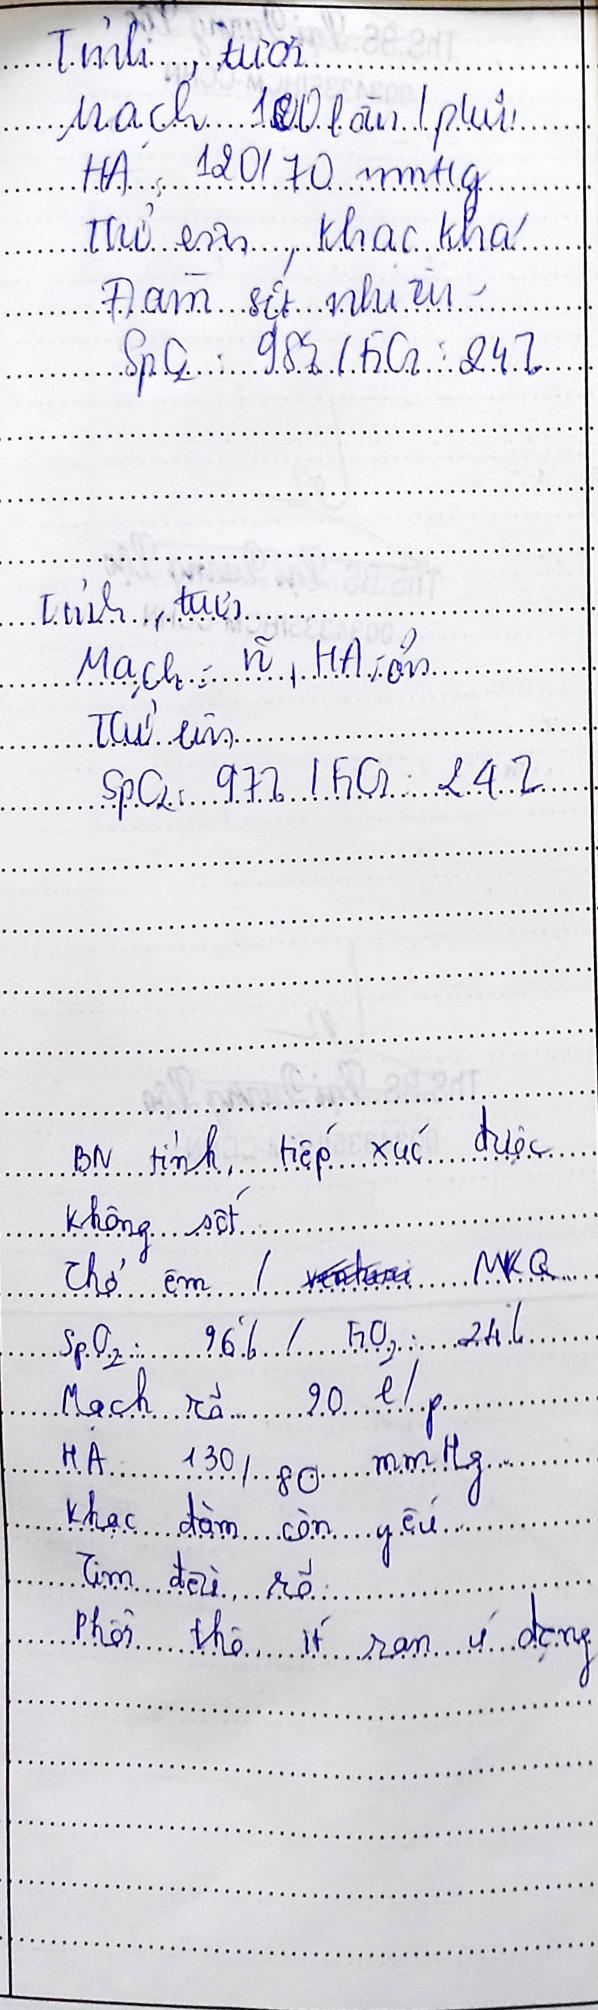 Tỉnh, tươi
Mạch 100 lần/phút
HA: 120/70 mmHg
Thở êm, khạc khá
Đàm sệt nhiều
SpO2: 98% / FiO2: 24%
Tỉnh, tươi
Mạch: rõ, HA: ổn
Thở êm
SpO2: 97% / FiO2: 24%
BN tỉnh, tiếp xúc được
không sốt
Thở êm / MKQ
SpO2: 96% / FiO2: 24%
Mạch rõ 90 l/p
HA 130/80 mmHg
Khạc đàm còn yếu
Tim đều, rõ
Phổi thô, ít ran ứ đọng